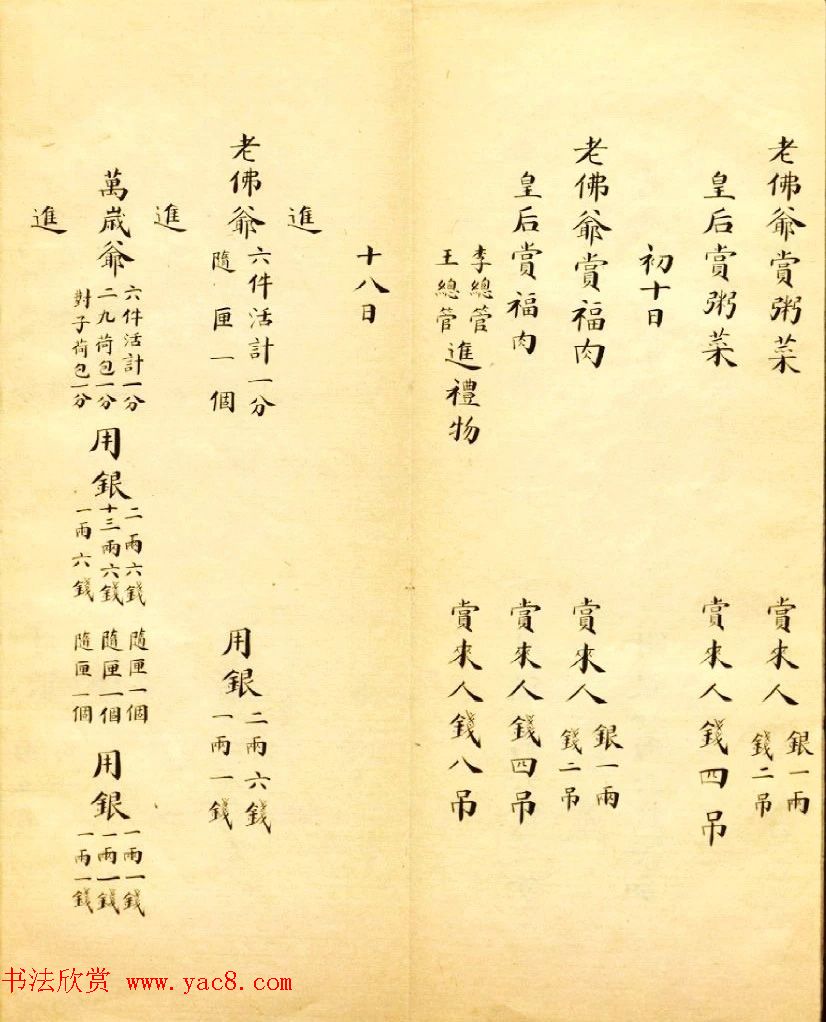 老佛爺賞粥菜 賞來人 銀一兩 錢二吊
皇后賞粥菜 賞來人錢四吊
初十日
老佛爺賞福肉 賞來人 銀一兩 錢二吊
皇后賞福肉 賞來人錢四吊
李總管 王總管 進禮物 賞來人錢八吊
十八日
進
老佛爺 六件活計一分 隨匣一個 用銀 二兩六錢 一兩一錢
進
萬歲爺 六件活計一分 二九荷包一分 對子荷包一分 用銀 二兩六錢 十三兩六錢 一兩六錢 隨匣一個 隨匣一個 隨匣一個 用銀 一兩一錢 一兩一錢 一兩一錢
進
书法欣赏 www.yac8.com